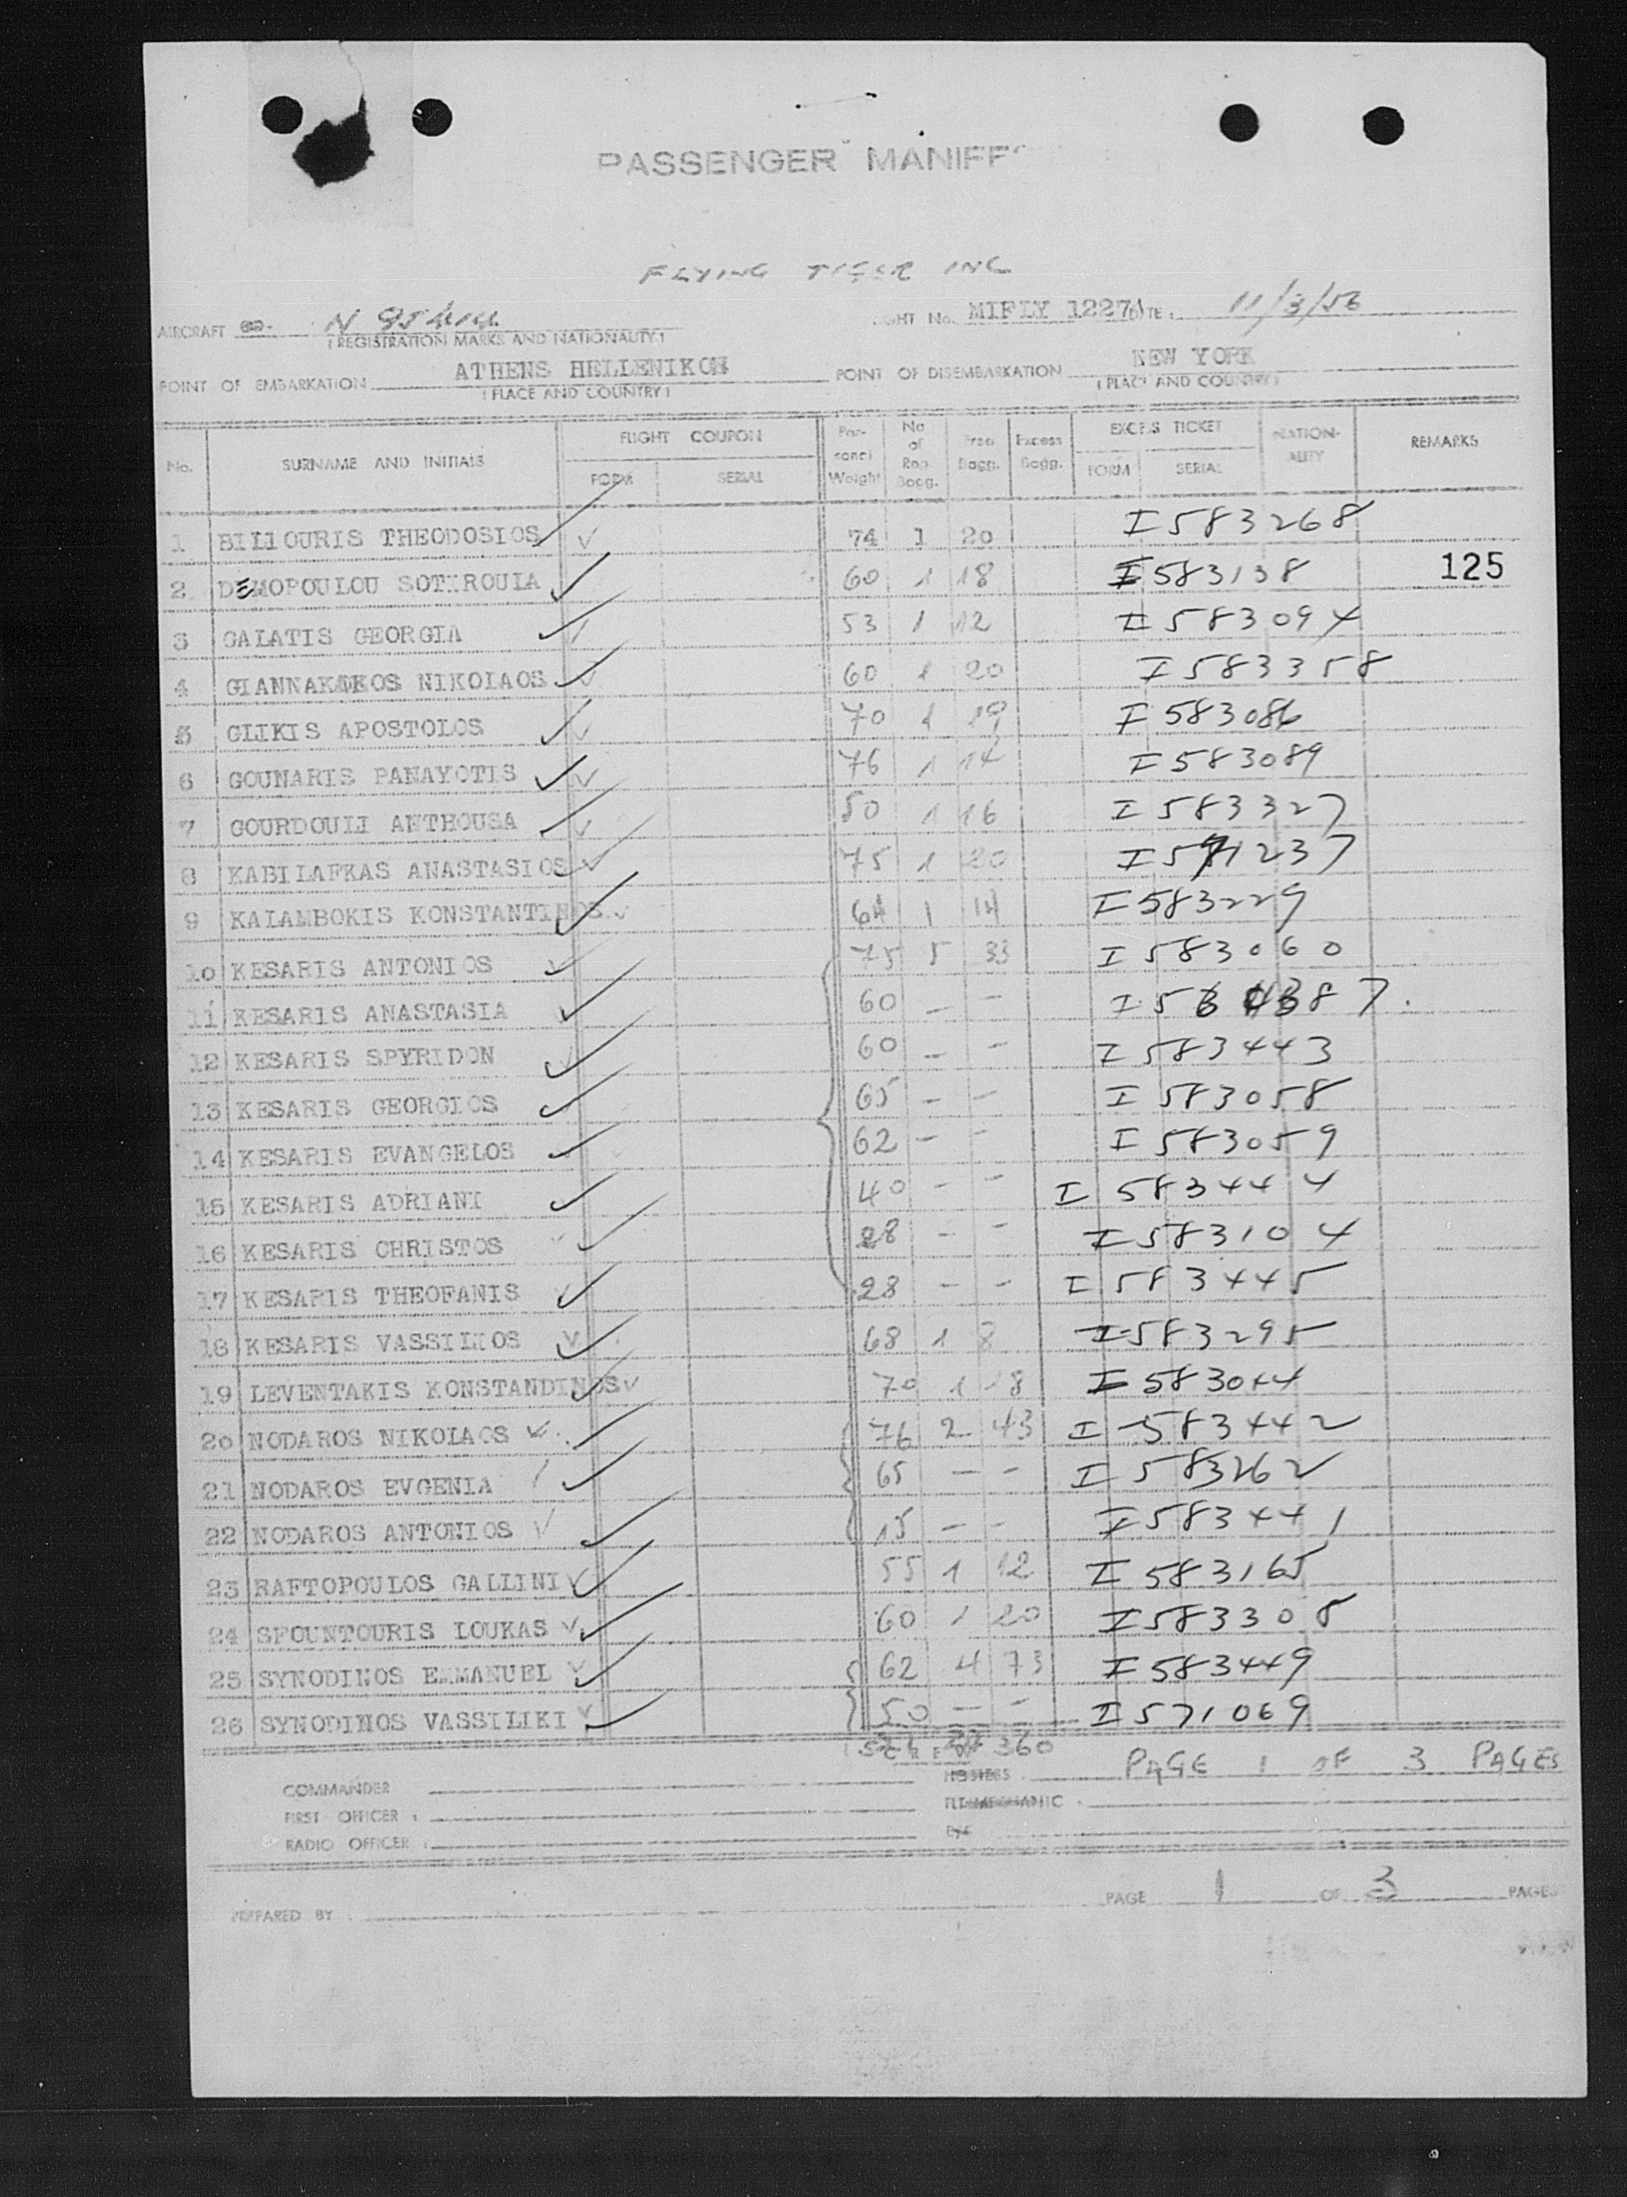 PASSENGER MANIF
FLYING TIGER INC
AIRCRAFT N MIFLY 1227A 11/3/56
(REGISTRATION MARKS AND NATIONALITY)
POINT OF EMBARKATION ATHENS HELLENIKON POINT OF DISEMBARKATION NEW YORK
(PLACE AND COUNTRY) (PLACE AND COUNTRY)
No. SURNAME AND INITIALS FLIGHT COUPON FORM SERIAL Personel Weight No of Reg. Bagg. Free Bagg. Excess Bagg. EXCESS TICKET FORM SERIAL NATIONALITY REMARKS
1 BILIOURIS THEODOSIOS 74 1 20 I 583268
2 DEMOPOULOU SOTIROULA 60 1 18 I 583138 125
3 GALATIS GEORGIA 53 1 12 I 583094
4 NIKOLAOS 60 1 20 I 583358
5 GLIKIS APOSTOLOS 70 1 19 I 583086
6 GOUNARIS PANAYOTIS 76 1 14 I 583089
7 GOURDOULI ANTHOUSA 50 1 16 I 583327
8 KABILAFKAS ANASTASIOS 75 1 20 I 571237
9 KALAMBOKIS KONSTANTINOS 64 1 14 I 583229
10 KESARIS ANTONIOS 75 5 33 I 583060
11 KESARIS ANASTASIA 60 - - I
12 KESARIS SPYRIDON 60 - - I 583443
13 KESARIS GEORGIOS 65 - - I 583058
14 KESARIS EVANGELOS 62 - - I 583059
15 KESARIS ADRIANI 40 - - I 583444
16 KESARIS CHRISTOS 28 - - I 583104
17 KESARIS THEOFANIS 28 - - I 583445
18 KESARIS VASSILIOS 68 1 8 I 583295
19 LEVENTAKIS KONSTANDINOS 70 1 18 I 583044
20 NODAROS NIKOLAOS 76 2 43 I 583442
21 NODAROS EVGENIA 65 - - I 583262
22 NODAROS ANTONIOS 15 - - I 583441
23 RAFTOPOULOS GALLINI 55 1 12 I 583165
24 SFOUNTOURIS LOUKAS 60 1 20 I 583308
25 SYNODINOS EMMANUEL 62 4 73 I 583449
26 SYNODINOS VASSILIKI 50 - - I 571069
CREW 360
COMMANDER HOSTESS PAGE 1 OF 3 PAGES
FIRST OFFICER : FLT.MECHANIC
RADIO OFFICER :
PAGE 1 OF 3 PAGES
PREPARED BY :